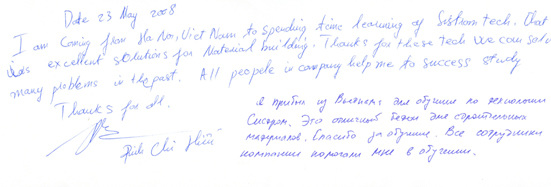 Date 23 May 2008
I am coming from Ha Noi, Viet Nam to spending time learning of Sistrom tech. That
was excellent solutions for Material building. Thanks for these tech we can solve
many problems in the past. All people in company help me to success study
Thanks for all.
Я прибыл из Вьетнама для обучения по технологии
Систром. Это отличный техн для строительных
материалов. Спасибо за обучение. Все сотрудники
компании помогали мне в обучении.